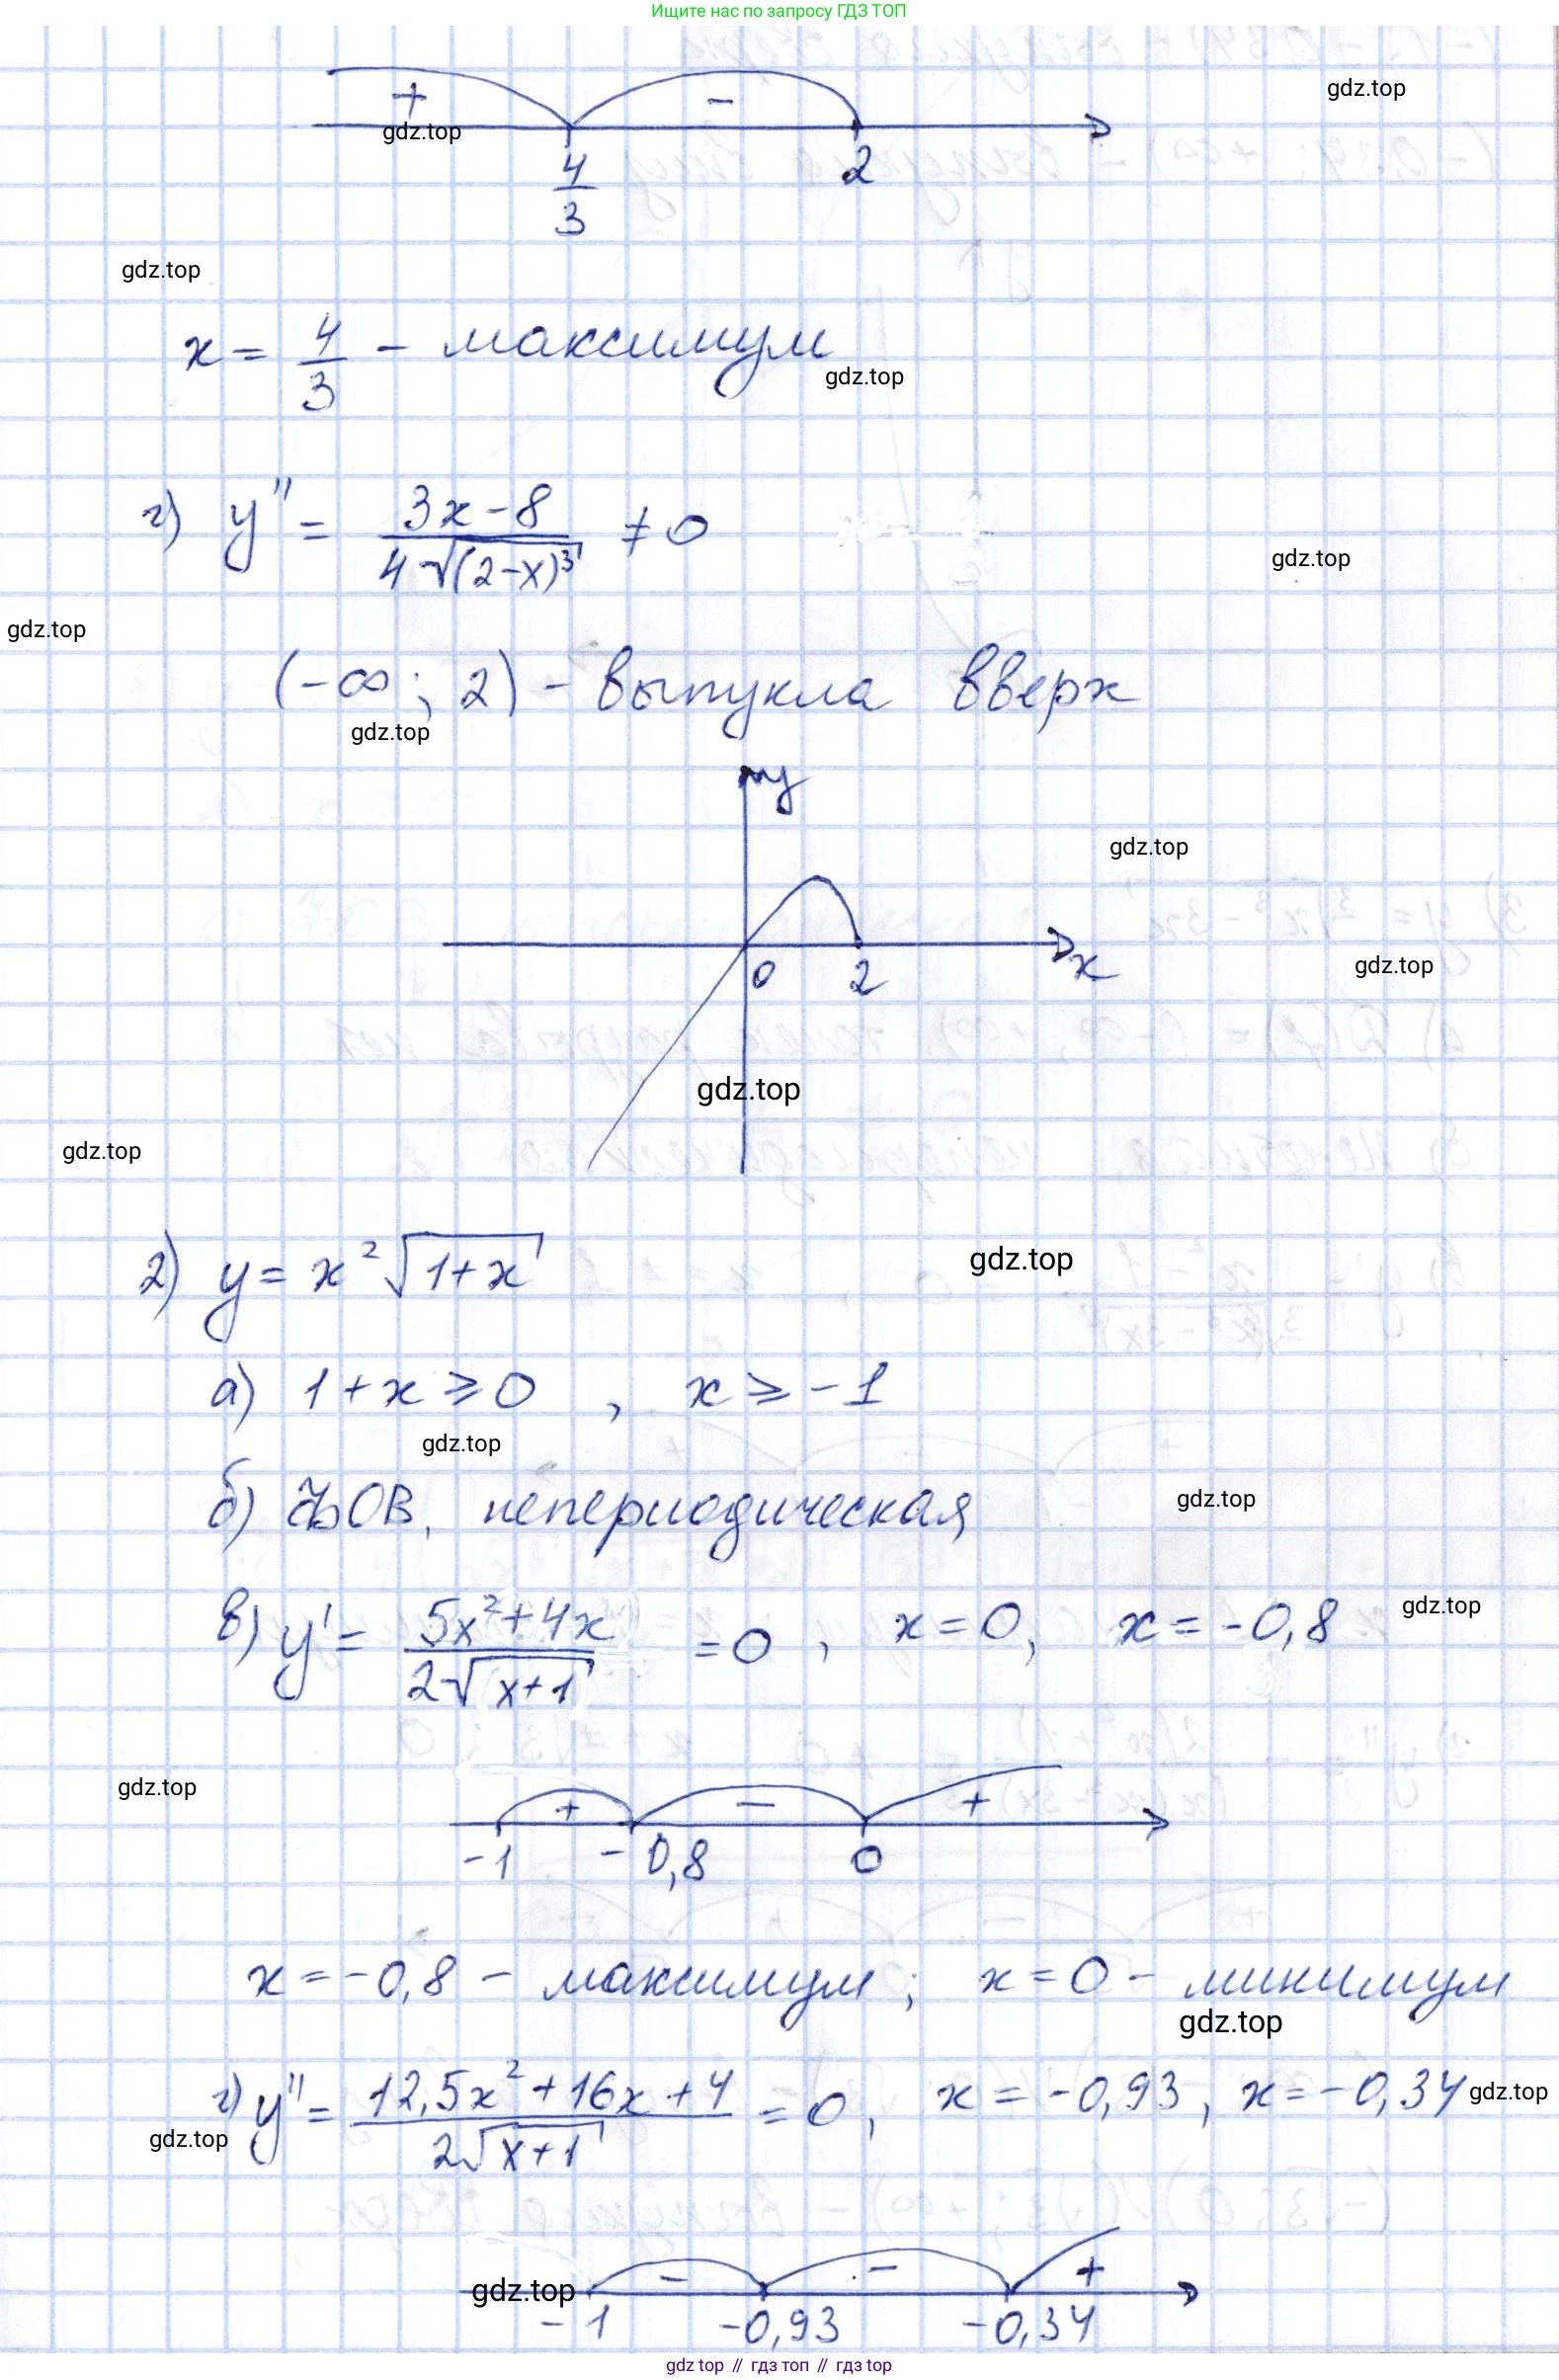 Ищите нас по запросу ГДЗ ТОП
+ -
gdz.top gdz.top
4/3 2
gdz.top
x = 4/3 - максимум
gdz.top
г) y'' = (3x-8)/(4√(2-x)³) ≠ 0
gdz.top
gdz.top
(-∞; 2) - выпукла вверх
gdz.top
y
gdz.top
0 2 x
gdz.top
gdz.top
gdz.top
2) y = x²√(1+x)
gdz.top
а) 1+x ≥ 0 , x ≥ -1
gdz.top
б) ФОВ, непериодическая
gdz.top
в) y' = (5x²+4x)/(2√(x+1)) = 0 , x = 0, x = -0,8
gdz.top
gdz.top
+ - +
-1 -0,8 0
x = -0,8 - максимум; x = 0 - минимум
gdz.top
г) y'' = (12,5x²+16x+4)/(2√(x+1)) = 0, x = -0,93, x = -0,34
gdz.top
gdz.top
- - +
gdz.top
-1 -0,93 -0,34
gdz.top // гдз топ // гдз top